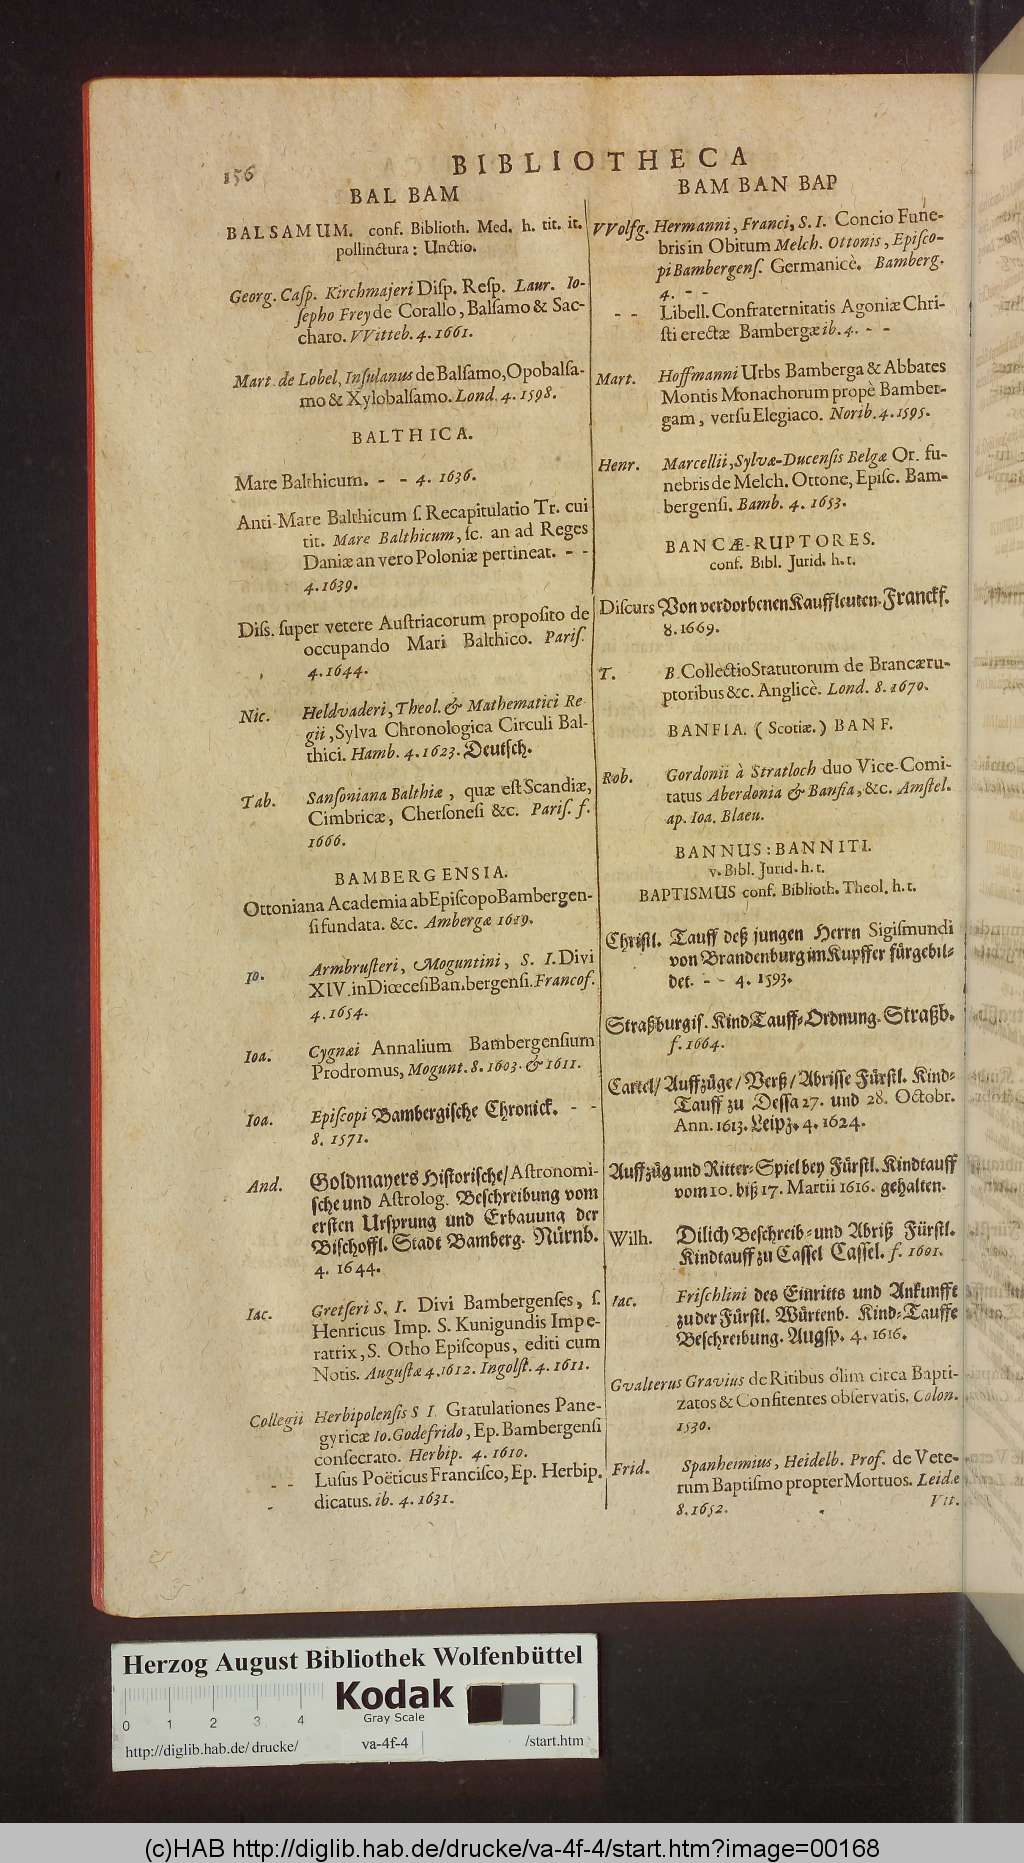 156
BIBLIOTHECA
BAL BAM
BALSAMUM. conf. Biblioth. Med. h. tit. it.
pollinctura: Unctio.
Georg. Caſp. Kirchmajeri Diſp. Reſp. Laur. Io-
ſepho Frey de Corallo, Balſamo & Sac-
charo. VVitteb. 4. 1661.
Mart. de Lobel, Inſulanus de Balſamo, Opobalſa-
mo & Xylobalſamo. Lond. 4. 1598.
BALTHICA.
Mare Balthicum. - - 4. 1636.
Anti-Mare Balthicum ſ. Recapitulatio Tr. cui
tit. Mare Balthicum, ſc. an ad Reges
Daniæ an vero Poloniæ pertineat. - -
4. 1639.
Diſſ. ſuper vetere Auſtriacorum propoſito de
occupando Mari Balthico. Pariſ.
4. 1644.
Nic. Heldvaderi, Theol. & Mathematici Re
gii, Sylva Chronologica Circuli Bal-
thici. Hamb. 4. 1623. Deutſch.
Tab. Sanſoniana Balthiæ, quæ eſt Scandiæ,
Cimbricæ, Cherſoneſi &c. Pariſ. f.
1666.
BAMBERGENSIA.
Ottoniana Academia ab Epiſcopo Bambergen-
ſi fundata. &c. Ambergæ 1619.
Io. Armbruſteri, Moguntini, S. I. Divi
XIV. in Diœceſi Bambergenſi. Francof.
4. 1654.
Ioa. Cygnæi Annalium Bambergenſium
Prodromus, Mogunt. 8. 1603. & 1611.
Ioa. Epiſcopi Bambergiſche Chronick. - -
8. 1571.
And. Goldmayers Hiſtoriſche/ Aſtronomi-
ſche und Aſtrolog. Beſchreibung vom
erſten Urſprung und Erbauung der
Biſchoffl. Stadt Bamberg. Nürnb.
4. 1644.
Iac. Gretſeri S. I. Divi Bambergenſes, ſ.
Henricus Imp. S. Kunigundis Impe-
ratrix, S. Otho Epiſcopus, editi cum
Notis. Auguſtæ 4. 1612. Ingolſt. 4. 1611.
Collegii Herbipolenſis S I. Gratulationes Pane-
gyricæ Io. Godefrido, Ep. Bambergenſi
conſecrato. Herbip. 4. 1610.
- - Luſus Poëticus Franciſco, Ep. Herbip.
- dicatus. ib. 4. 1631.
BAM BAN BAP
VVolfg. Hermanni, Franci, S. I. Concio Fune-
bris in Obitum Melch. Ottonis, Epiſco-
pi Bambergenſ. Germanicè. Bamberg.
4. - -
- - Libell. Confraternitatis Agoniæ Chri-
ſti erectæ Bambergæ ib. 4. - -
Mart. Hoffmanni Urbs Bamberga & Abbates
Montis Monachorum propè Bamber-
gam, verſu Elegiaco. Norib. 4. 1595.
Henr. Marcellii, Sylvæ-Ducenſis Belgæ Or. fu-
nebris de Melch. Ottone, Epiſc. Bam-
bergenſi. Bamb. 4. 1653.
BANCÆ-RUPTORES.
conf. Bibl. Jurid. h. t.
Diſcurs Von verdorbenen Kauffleuten. Franckf.
8. 1669.
T. B. Collectio Statutorum de Brancæru-
ptoribus &c. Anglicè. Lond. 8. 1670.
BANFIA. (Scotiæ.) BANF.
Rob. Gordonii à Stratloch duo Vice-Comi-
tatus Aberdonia & Banfia, &c. Amſtel.
ap. Ioa. Blaeu.
BANNUS: BANNITI.
v. Bibl. Jurid. h. t.
BAPTISMUS conf. Biblioth. Theol. h. t.
Chriſtl. Tauff deß jungen Herrn Sigiſmundi
von Brandenburg im Kupffer fürgebil-
det. - - 4. 1593.
Straßburgiſ. Kind Tauff-Ordnung. Straßb.
f. 1664.
Cartel/ Auffzüge/ Verß/ Abriſſe Fürſtl. Kind-
Tauff zu Deſſa 27. und 28. Octobr.
Ann. 1613. Leipz. 4. 1624.
Auffzüg und Ritter-Spiel bey Fürſtl. Kindtauff
vom 10. biß 17. Martii 1616. gehalten.
Wilh. Dilich Beſchreib- und Abriß Fürſtl.
Kindtauff zu Caſſel Caſſel. f. 1601.
Iac. Friſchlini des Einritts und Ankunfft
zu der Fürſtl. Würtenb. Kind-Tauffe
Beſchreibung. Augſp. 4. 1616.
Gvalterus Gravius de Ritibus olim circa Bapti-
zatos & Confitentes obſervatis. Colon.
1530.
Frid. Spanheimius, Heidelb. Prof. de Vete-
rum Baptiſmo propter Mortuos. Leidæ
8. 1652.
Vit.
Herzog August Bibliothek Wolfenbüttel
Kodak
Gray Scale
0 1 2 3 4
http://diglib.hab.de/drucke/ va-4f-4 /start.htm
(c)HAB http://diglib.hab.de/drucke/va-4f-4/start.htm?image=00168